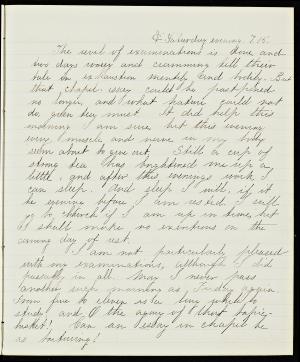 Saturday evening, 7.15.
The seval of examinations is done and
two days worry and cramming tell their
tale in exhaustion mentally and bodily. But
that chapel essay could be postponed
no longer, and what nature could not
do, green tea must. It did help this
morning I am sure, but this evening
every muscle and nerve in my body
seem about to give out. Still a cup of
strong tea has brightened me up a
little, and after this evenings work I
can sleep. And sleep I will, if it
be evening before I am rested. I will
go to church if I am up in time, but
I shall make no exertions on the
coming day of rest.
I am not particularly pleased
with my examinations, although I did
passably in all. May I never pass
another such morning as Friday again
from five to eleven
study and O the agony of that
! Can an Essay in chapel be
as torturing!